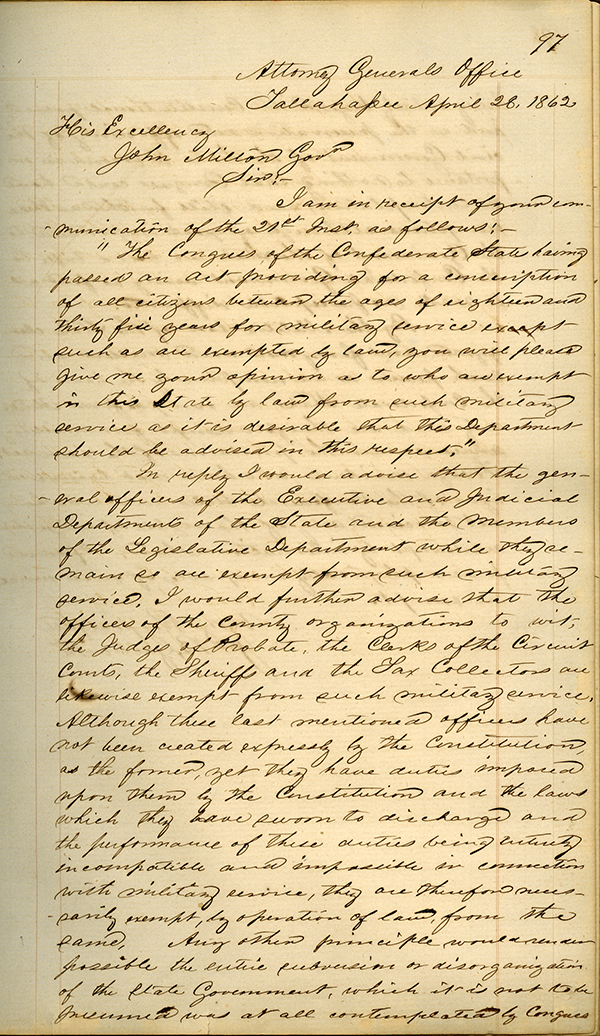 97
Attorney Generals Office
Tallahassee April 28, 1862
His Excellency
John Milton Govr
Sir:-
I am in receipt of your com-
-munication of the 21st Inst. as follows:-
"The Congress of the Confederate States having
passed an act providing for a conscription
of all citizens between the ages of eighteen and
thirty five years for military service except
such as are exempted by law, you will please
give me your opinion as to who are exempt
in this State by law from such military
service as it is desirable that this Department
should be advised in this respect."
In reply I would advise that the gen-
-eral officers of the Executive and Judicial
Departments of the State and the members
of the Legislative Department while they re-
main so are exempt from such military
service. I would further advise that the
officers of the county organizations to wit,
the Judges of Probate, the Clerks of the Circuit
Courts, the Sheriffs and the Tax Collectors are
likewise exempt from such military service.
Although these last mentioned officers have
not been created expressly by the Constitution,
as the former, yet they have duties imposed
upon them by the Constitution and the laws
which they have sworn to discharge and
the performance of these duties being entirely
incompatible and impossible in connection
with military service, they are therefore neces-
-sarily exempt, by operation of law, from the
same. Any other principle would render
possible the entire subversion or disorganization
of the State Government, which it is not to be
presumed was at all contemplated by Congress